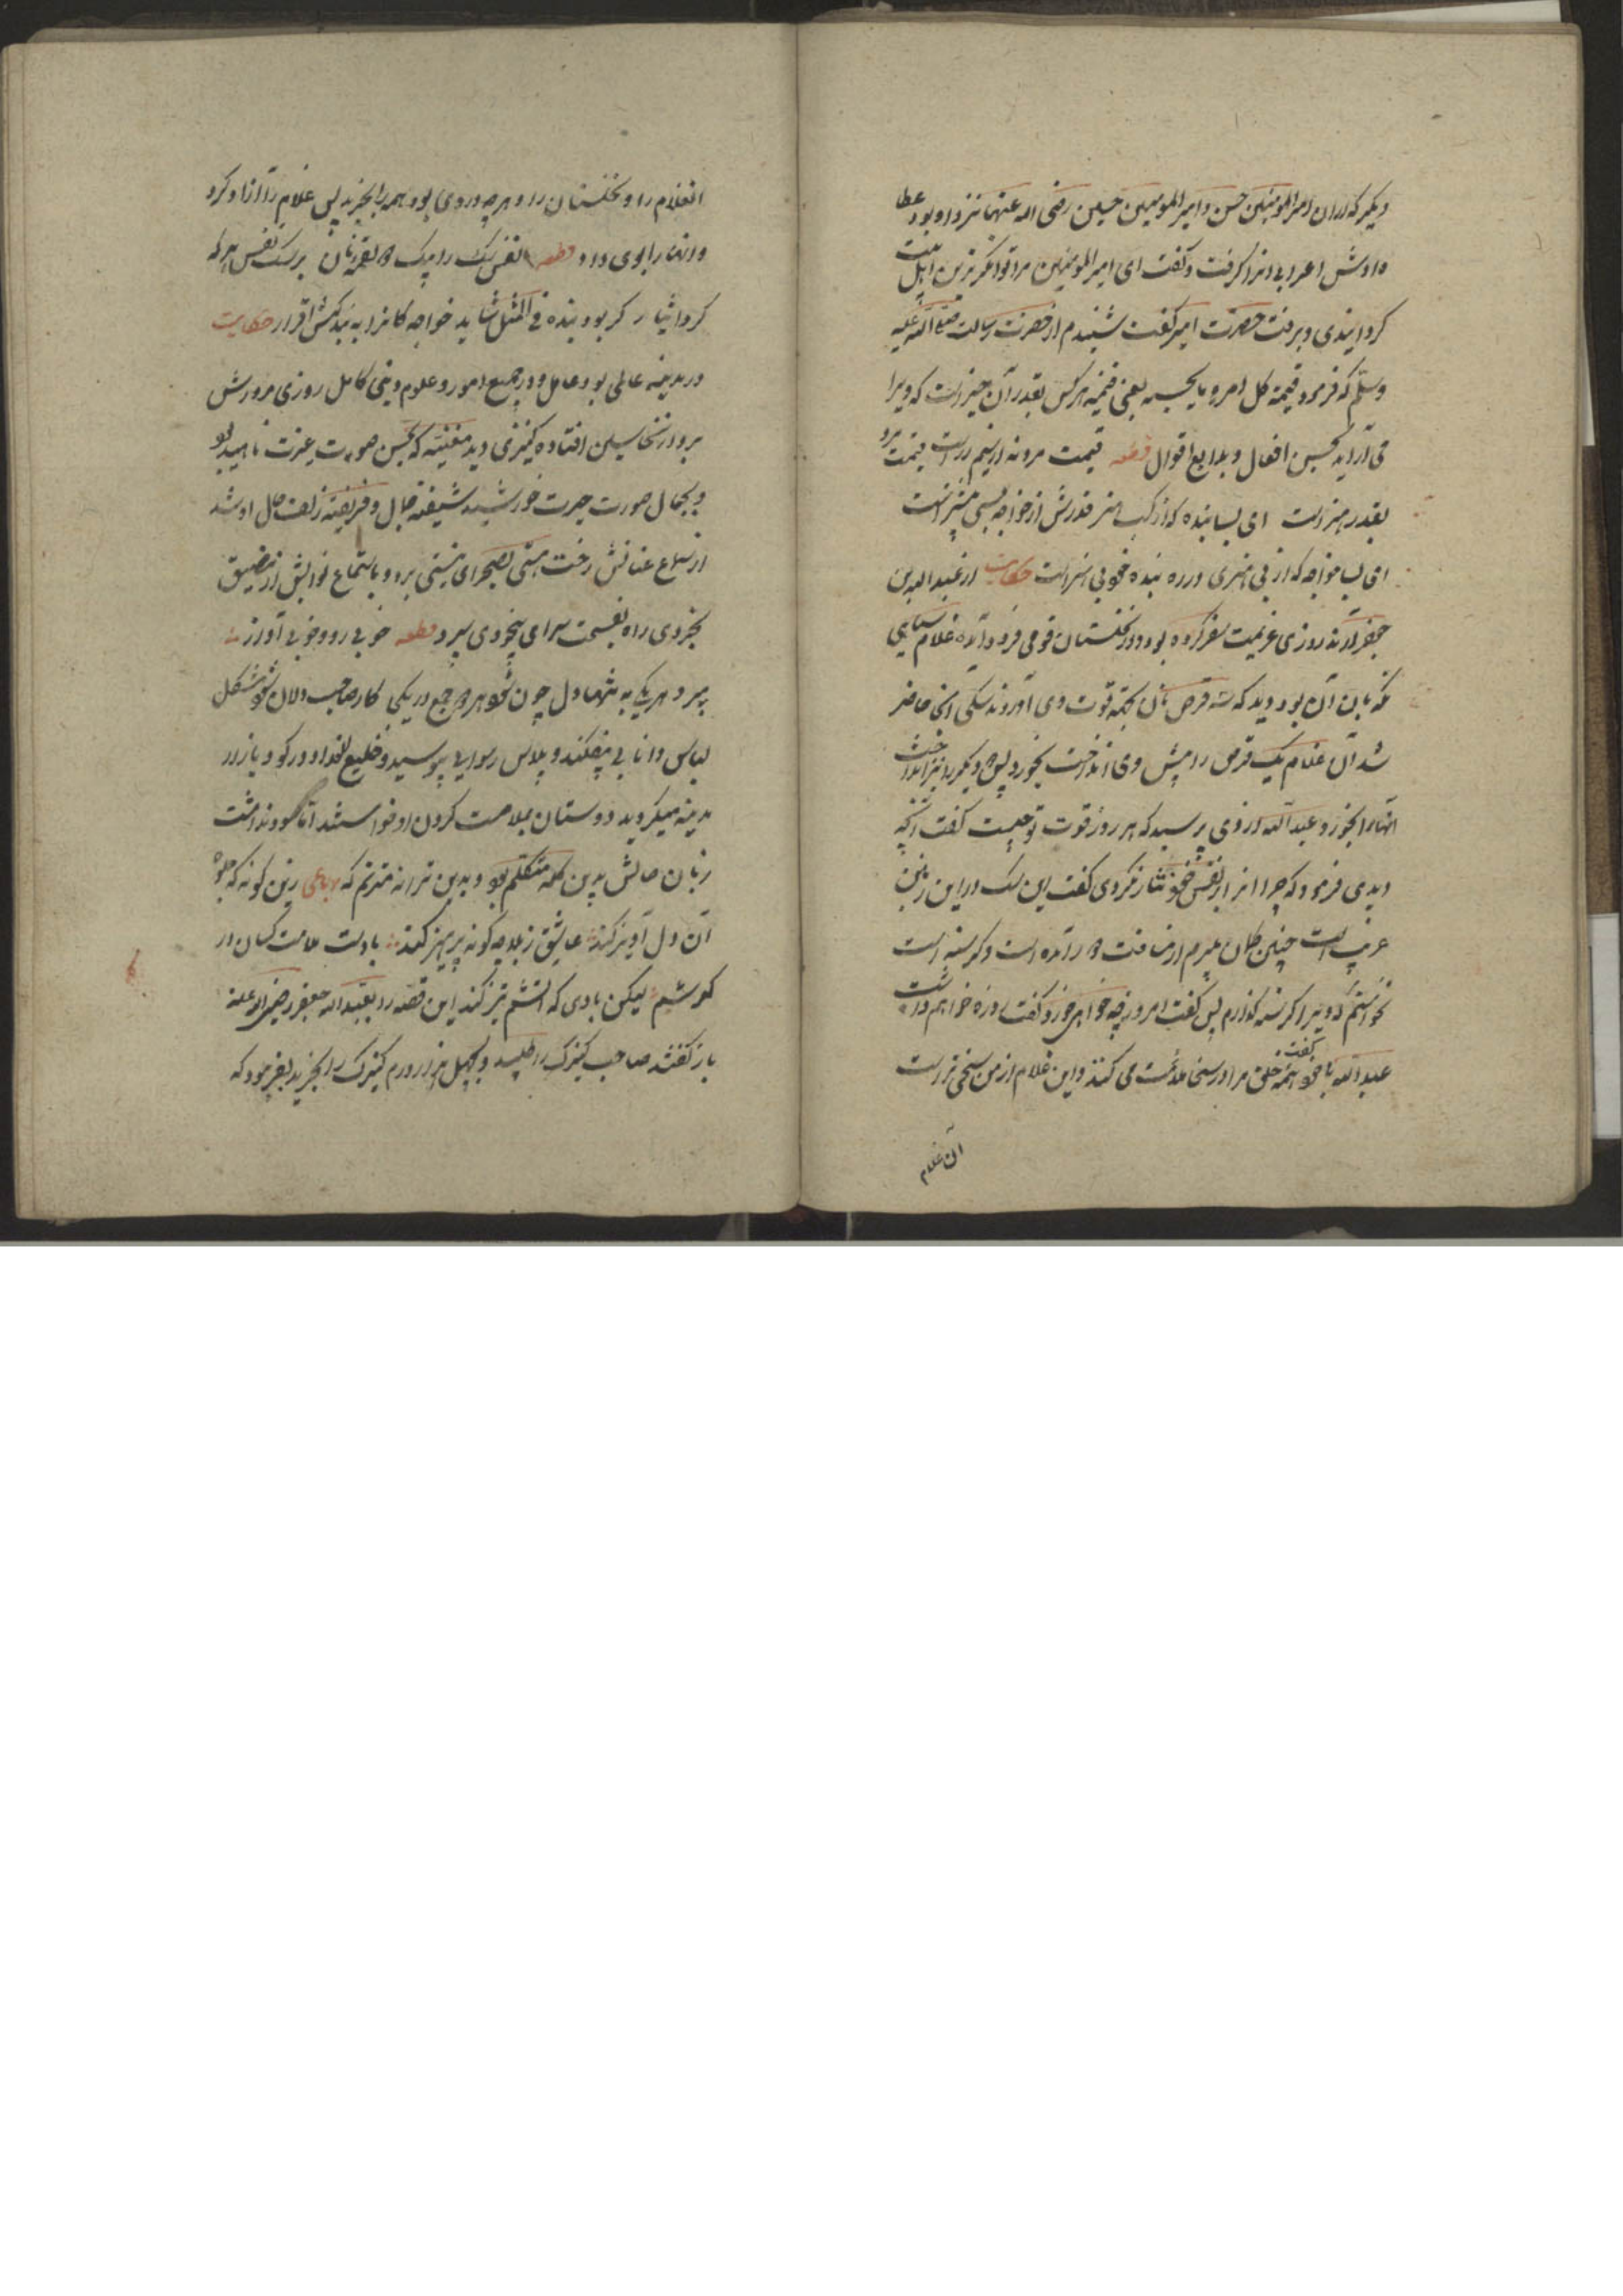 دیکر که از ان امیر المومنین حسن و امیر المومنین حسین رضی الله عنهما نزد او بود عطا
دادش اعرابی انرا کرفت و کفت ای امیر المومنین مرا توانکرترین اهل بیت
کردانیدی و برفت حضرت امیر کفت شنیدم از حضرت رسالت صلی الله علیه
وسلم که فرمود قیمة کل امرء ما یحسنه یعنی قیمت هر کس بقدر آن چیز است که ویرا
می آراید بحسن افعال و بدایع اقوال قطعه قیمت مرد نه از سیم و زر است قیمت مرد
بقدر هنر است ای بسا بنده که از کسب هنر قدرش از خواجه بسی بیشتر است
ای بسا خواجه که از بی هنری در ره بنده خود بی هنر است حکایت از عبد الله بن
جعفر آرند روزی عزیمت سفر کرده بود و در نخلستان قومی فرود آمده غلام سیاهی
نکه بان آن بود دید که سه قرص نان بجهة قوت وی آوردند سکی آنجا حاضر
شد آن غلام یک قرص را پیش وی انداخت بخورد پس دیکر را نیز انداخت
انهارا بخورد عبد الله از وی پرسید که هر روز قوت تو چیست کفت انکه
دیدی فرمود که چرا انرا بر نفس خود نثار نکردی کفت این سک در این زمین
غریب است چنین کمان میبرم از مسافت دور آمده است و کرسنه است
نخواستم که ویرا کرسنه کذارم پس کفت امروز چه خواهی خورد کفت روزه خواهم داشت
عبد الله با خود کفت همه خلق مرا در سخا ملامت می کنند و این غلام از من سخی تر است
آن غلام
انغلام را و نخلستان را و هر چه در وی بود همه را بخرید پس غلام را آزاد کرد
و انها را بوی داد قطعه نفس سک را بیک دو لقمه نان بر سک نفس هر که
کرد ایثار کر بود بنده فی المثل شاید خواجه کانرا به بندکیش اقرار حکایت
در مدینه عالمی بود عامل و در جمیع امور و علوم دینی کامل روزی مرورش
بر دار نخاسین افتاده کنیزکی دید مغنیه که بحسن صوت غیرت ناهید بود
و بجمال صورت حیرت خورشید شیفته جمال و فریفته زلف و خال او شد
از سماع غنائش رخت هستی بصحرای نیستی برد و باستماع نوایش از مضیق
بخردی راه بفسحت سرای بیخودی سپرد قطعه خوبی رو و خوبی آواز
میبرد هر یکی به تنها دل چون شود هر دو جمع در یکی کار صاحب دلان شود مشکل
لباس دانایی بیفکند و پلاس رسوایی پوشید و خلیع العذار در کو و بازار
مدینه میکردید دوستان بملامت کردن او خواستند اما سود نداشت
زبان حالش بدین کلمه متکلم بود و بدین ترانه مترنم که رباعی زین کونه که جلوه
آن دل آویز کند عاشق ز بلا چه کونه پرهیز کند بادست ملامت کسان در
کوشم لیکن بادی که آتشم تیز کند این قصه را بعبد الله جعفر رضی الله عنه
باز کفتند صاحب کنیزک را طلبید و بچهل هزار درم کنیزک را بخرید بفرمود که